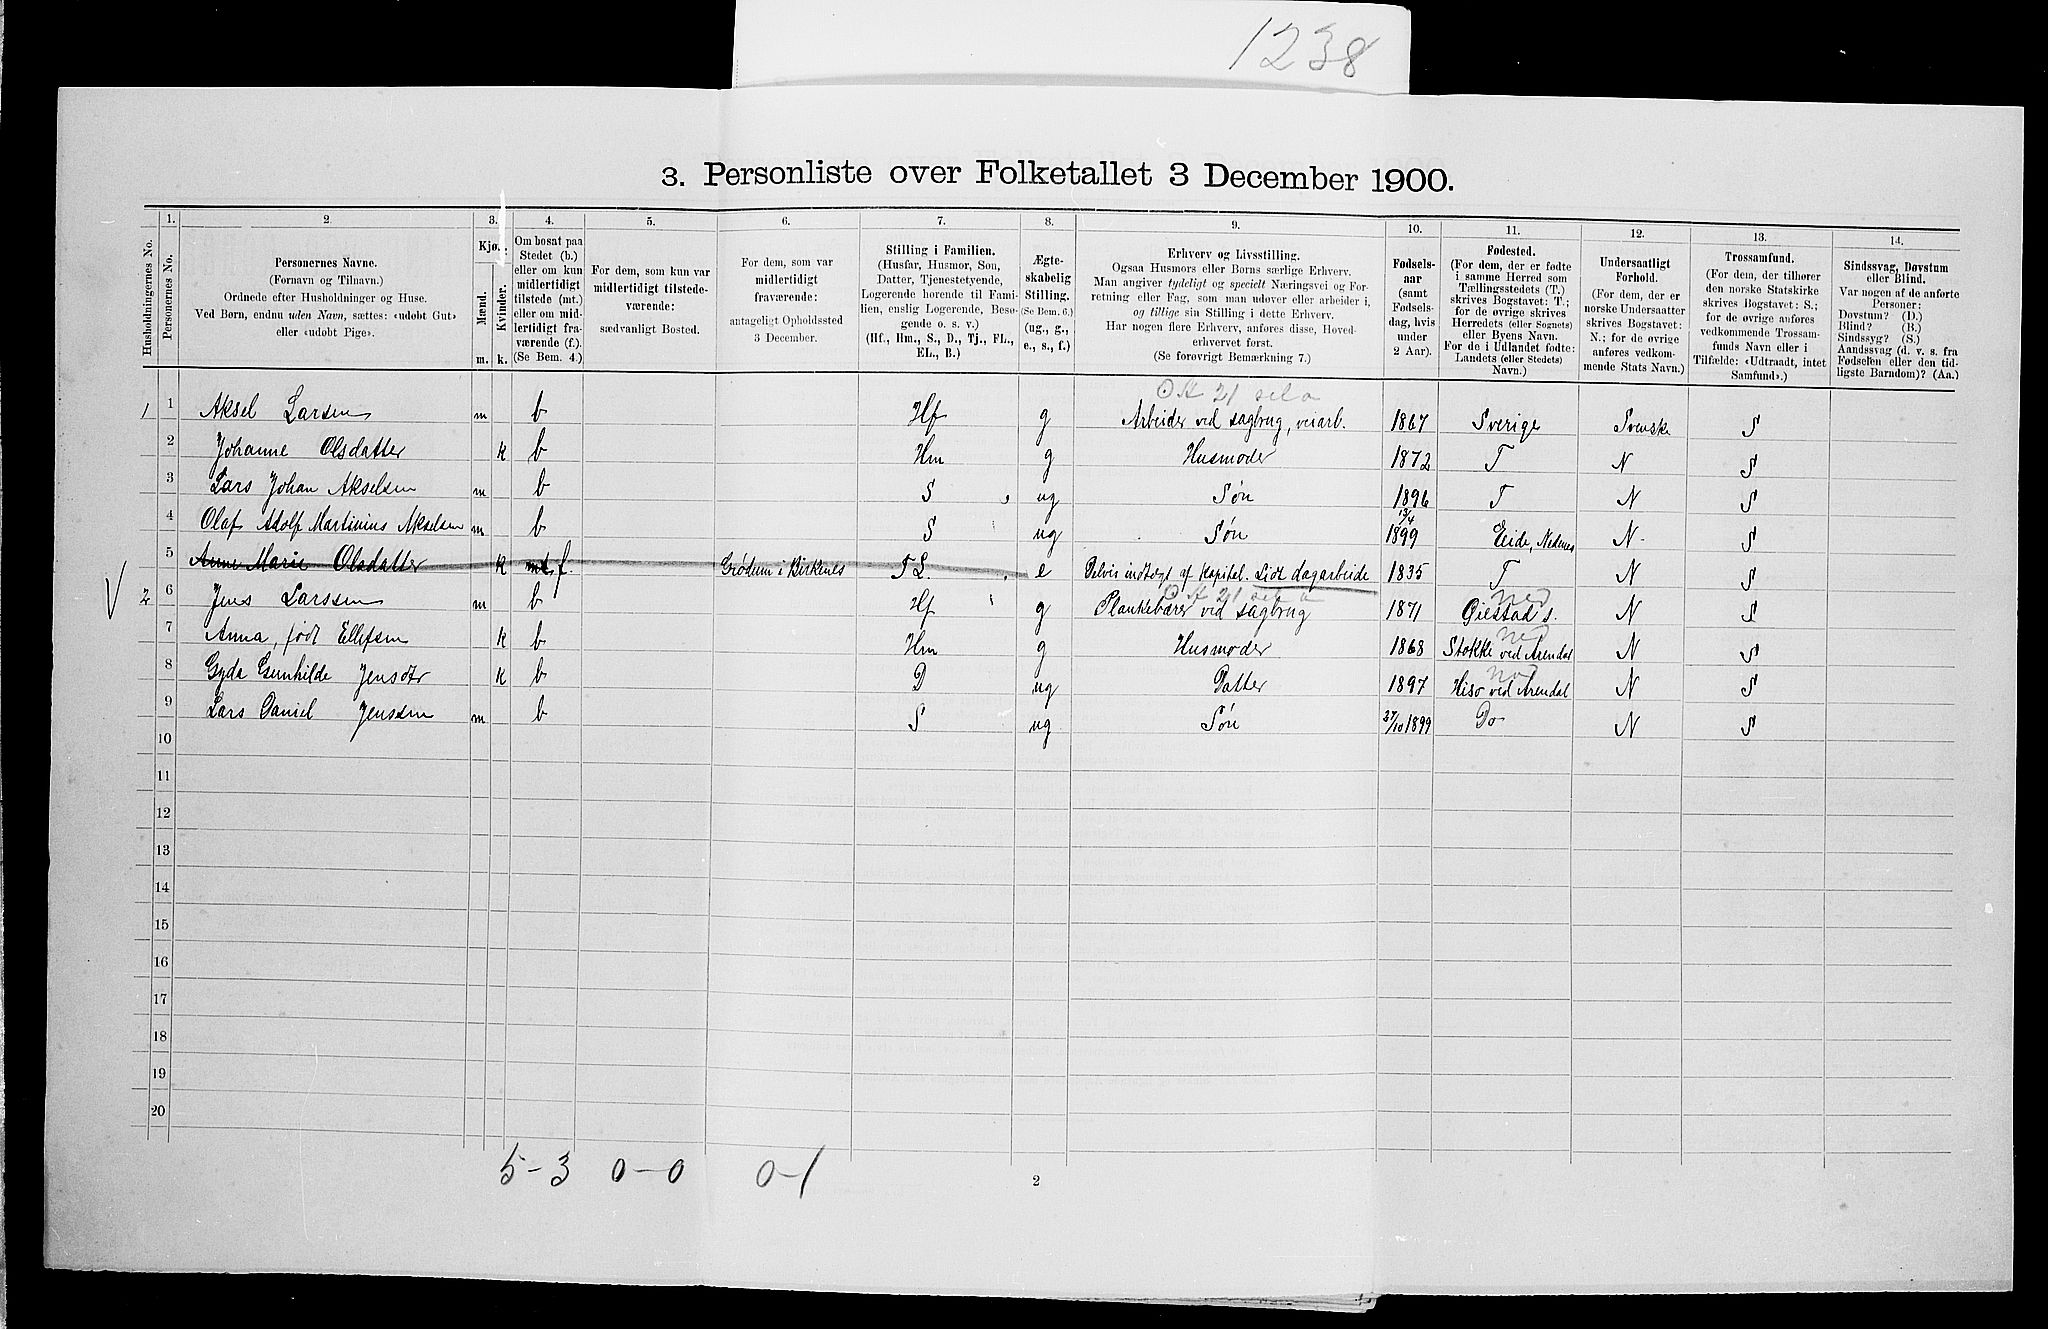 1238
3. Personliste over Folketallet 3 December 1900.
Husholdningernes No.
1. Personernes No.
2. Personernes Navne.
(Fornavn og Tilnavn.)
Ordnede efter Husholdninger og Huse.
Ved Børn, endnu uden Navn, sættes: «udøbt Gut»
eller «udøbt Pige».
3. Kjøn.
Mænd. m.
Kvinder. k.
4. Om bosat paa
Stedet (b.)
eller om kun
midlertidigt
tilstede (mt.)
eller om mid-
lertidigt fra-
værende (f.).
(Se Bem. 4.)
5. For dem, som kun var
midlertidigt tilstede-
værende:
sædvanligt Bosted.
6. For dem, som var
midlertidigt
fraværende:
antageligt Opholdssted
3 December.
7. Stilling i Familien.
(Husfar, Husmor, Søn,
Datter, Tjenestetyende,
Logerende hørende til Fami-
lien, enslig Logerende, Besø-
gende o. s. v.)
(Hf., Hm., S., D., Tj., FL.,
EL., B.)
8. Ægte-
skabelig
Stilling.
(Se Bem. 6.)
(ug., g.,
e., s., f.)
9. Erhverv og Livsstilling.
Ogsaa Husmors eller Børns særlige Erhverv.
Man angiver tydeligt og specielt Næringsvei og For-
retning eller Fag, som man udøver eller arbeider i,
og tillige sin Stilling i dette Erhverv.
Har nogen flere Erhverv, anføres disse, Hoved-
erhvervet først.
(Se forøvrigt Bemærkning 7.)
10. Fødsels-
aar
(samt
Fødsels-
dag, hvis
under
2 Aar).
11. Fødested.
(For dem, der er fødte
i samme Herred som
Tællingsstedets (T.)
skrives Bogstavet: T.;
for de øvrige skrives
Herredets (eller Sognets)
eller Byens Navn.
For de i Udlandet fødte:
Landets (eller Stedets)
Navn.)
12. Undersaatligt
Forhold.
(For dem, der er
norske Undersaatter
skrives Bogstavet:
N.; for de øvrige
anføres vedkom-
mende Stats Navn.)
13. Trossamfund.
(For dem, der tilhører
den norske Statskirke
skrives Bogstavet: S.;
for de øvrige anføres
vedkommende Trossam-
funds Navn eller i
Tilfælde: «Udtraadt, intet
Samfund».)
14. Sindssvag, Døvstum
eller Blind.
Var nogen af de anførte
Personer:
Døvstum? (D.)
Blind? (B.)
Sindssyg? (S.)
Aandssvag (d. v. s. fra
Fødselen eller den tid-
ligste Barndom)? (Aa.)
1 1 Aksel Larsen m b Hf g Arbeider ved sagbrug, veiarb. 1867 Sverige Svensk S
2 Johanne Olsdatter k b Hm g Husmoder 1872 T N S
3 Lars Johan Akselsen m b S ug Søn 1896 T N S
4 Olaf Adolf Martinius Akselsen m b S ug Søn 13/4 1899 Eide, Nedenes N S
5 Anne Marie Olsdatter k mt f. Grødum i Birkenes FL. e Delvis indtægt af Kapital. Lidt dagarbeide 1835 T N S
V 2 6 Jens Larssen m b Hf g Plankebærer ved sagbrug 1871 Øiestad s. Ned N S
7 Anna, født Ellefsen k b Hm g Husmoder 1868 Stokke ved Arendal Ned N S
8 Gyda Gunhilde Jensdtr k b D ug Datter 1897 Hisø ved Arendal Ned N S
9 Lars Daniel Jenssen m b S ug Søn 27/10 1899 Do N S
10
11
12
13
14
15
16
17
18
19
20
5-3 0-0 0-1
2